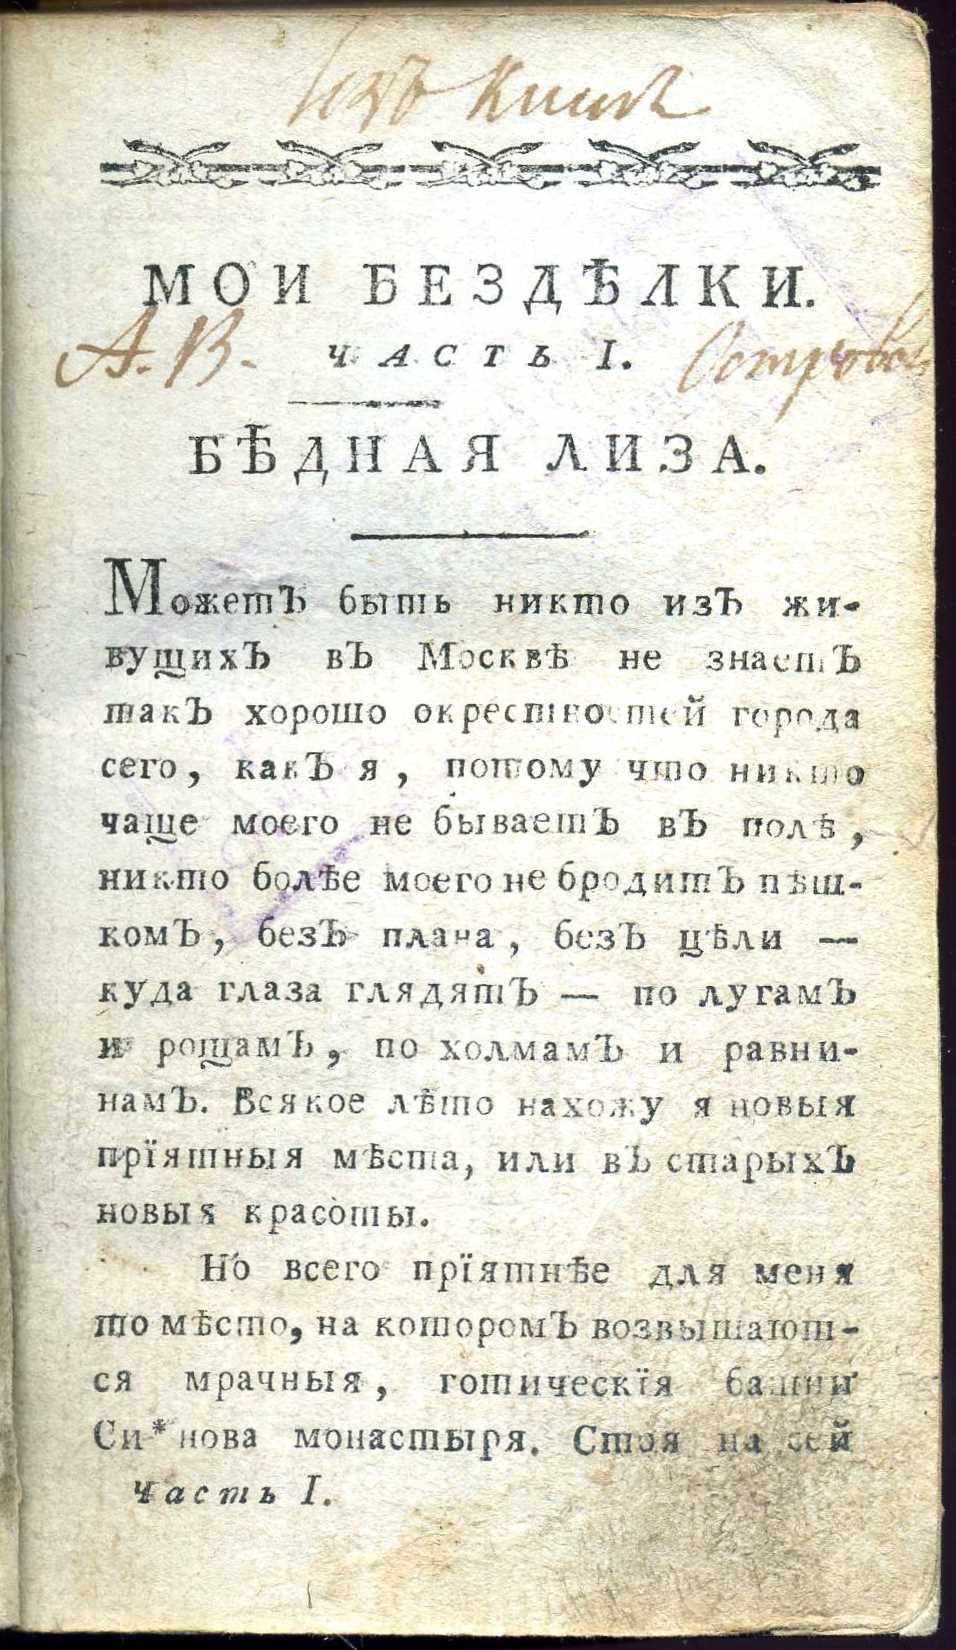 изъ книгъ
МОИ БЕЗДѢЛКИ.
А. В. ЧАСТЬ I. Островск
БѢДНАЯ ЛИЗА.
Можетъ быть никто изъ жи-
вущихъ въ Москвѣ не знаетъ
такъ хорошо окрестностей города
сего, какъ я, потому что никто
чаще моего не бываетъ въ полѣ,
никто болѣе моего не бродитъ пѣш-
комъ, безъ плана, безъ цѣли —
куда глаза глядятъ — по лугамъ
и рощамъ, по холмамъ и равни-
намъ. Всякое лѣто нахожу я новыя
прїятныя мѣста, или въ старыхъ
новыя красоты.
Но всего прїятнѣе для меня
то мѣсто, на которомъ возвышают-
ся мрачныя, готическїя башни
Си*нова монастыря. Стоя на сей
Часть I.